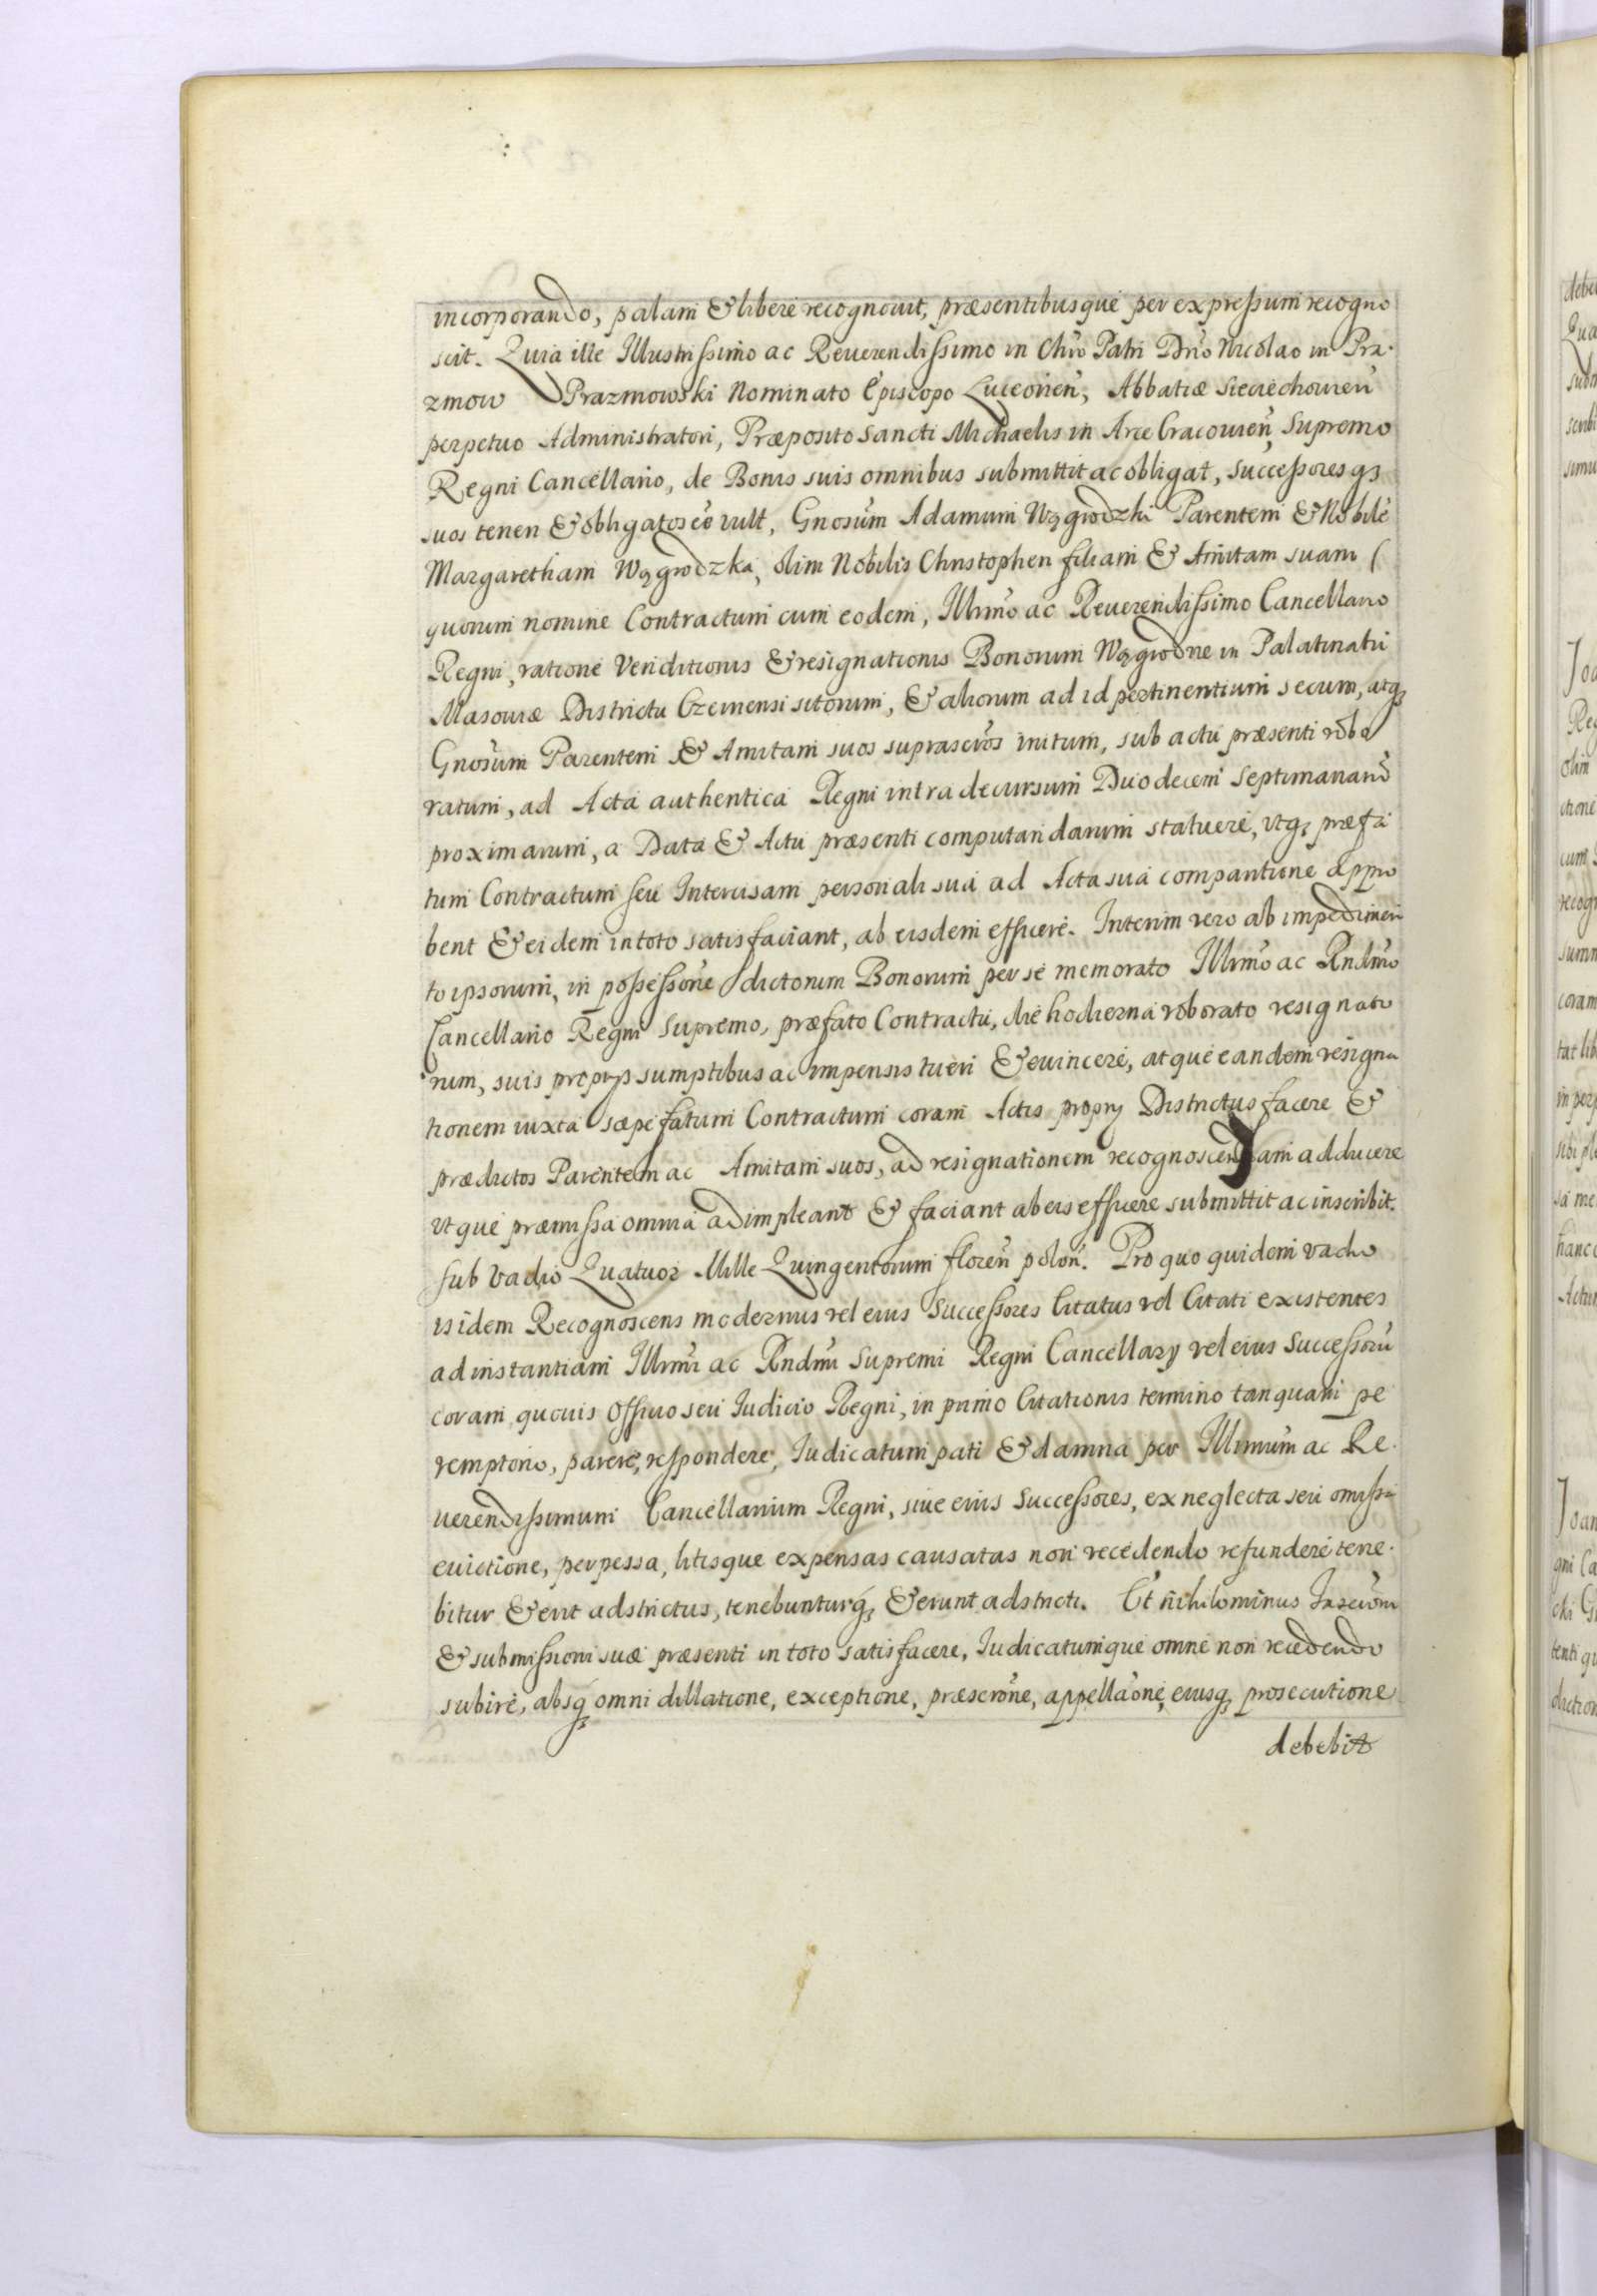 incorporando, palam & libere recognouit, præsentibusque per expressum recogno
scit. Quia ille Illustrissimo ac Reuerendissimo in Chro Patri Dno Nicolao in Pra-
zmow Prazmowski Nominato Episcopo Luceorien, Abbatiæ Sieciechouien
perpetuo Administratori, Præposito Sancti Michaelis in Arce Cracouien, Supremo
Regni Cancellario, de Bonis suis omnibus submittit ac obligat, Successoresq3
suos teneri & obligatos ee vult, Gnosum Adamum Węgrodzki Parentem & Nobile
Margaretham Węgrodzka, olim Nobilis Christopheri filiam & Amitam suam (
quorum nomine Contractum cum eodem, Illmo ac Reuerendissimo Cancellario
Regni, ratione Venditionis & resignationis Bonorum Węgrodne in Palatinatu
Masouiæ Districtu Czernensi sitorum, & aliorum ad id pertinentium secum, atq3
Gnosum Parentem & Amitam suos suprascros initum, sub actu præsenti robo
ratum, ad Acta authentica Regni intra decursum Duodecem Septimanaru
proximarum, a Data & Actu præsenti computandarum statuere, vtq3 præfa
tum Contractum seu Intercisam personali sua ad Acta sua comparitione appro
bent & eidem in toto satisfaciant, ab eisdem efficere. Interim vero ab impedimen
to ipsorum, in possessione dictorum Bonorum per se memorato Illmo ac Rndmo
Cancellario Regni Supremo, præfato Contractu, die hodierna roborato resignato
rum, suis proprys sumptibus ac impensis tueri & euincere, atque eandem resigna
tionem iuxta sæpefatum Contractum coram Actis propry Districtus facere &
prædictos Parentem ac Amitam suos, ad resignationem recognoscendam adducere
vtque præmissa omnia adimpleant & faciant ab eis efficere submittit ac inscribit.
sub Vadio Quatuor Mille Quingentorum floren polon. Pro quo quidem vadio
is idem Recognoscens modernus vel eius Successores Citatus vel Citati existentes
ad instantiam Illmi ac Rndmi Supremi Regni Cancellary vel eius Successoru
coram quouis Officio seu Iudicio Regni, in primo Citationis termino tanquam pe
remptorio, parere, respondere, Iudicatum pati & damna per Illmum ac Re-
uerendissimum Cancellarium Regni, siue eius Successores, ex neglecta seu omissa
euictione, perpessa, litisque expensas causatas non recedendo refundere tene-
bitur & erit adstrictus, tenebunturq3 & erunt adstricti. Et nihilominus Inscroni
& submissioni suæ præsenti in toto satisfacere, Iudicatumque omne non recedendo
subire, absq3 omni dillatione, exceptione, præscrone, appellaone, eiusq3 prosecutione
debebit